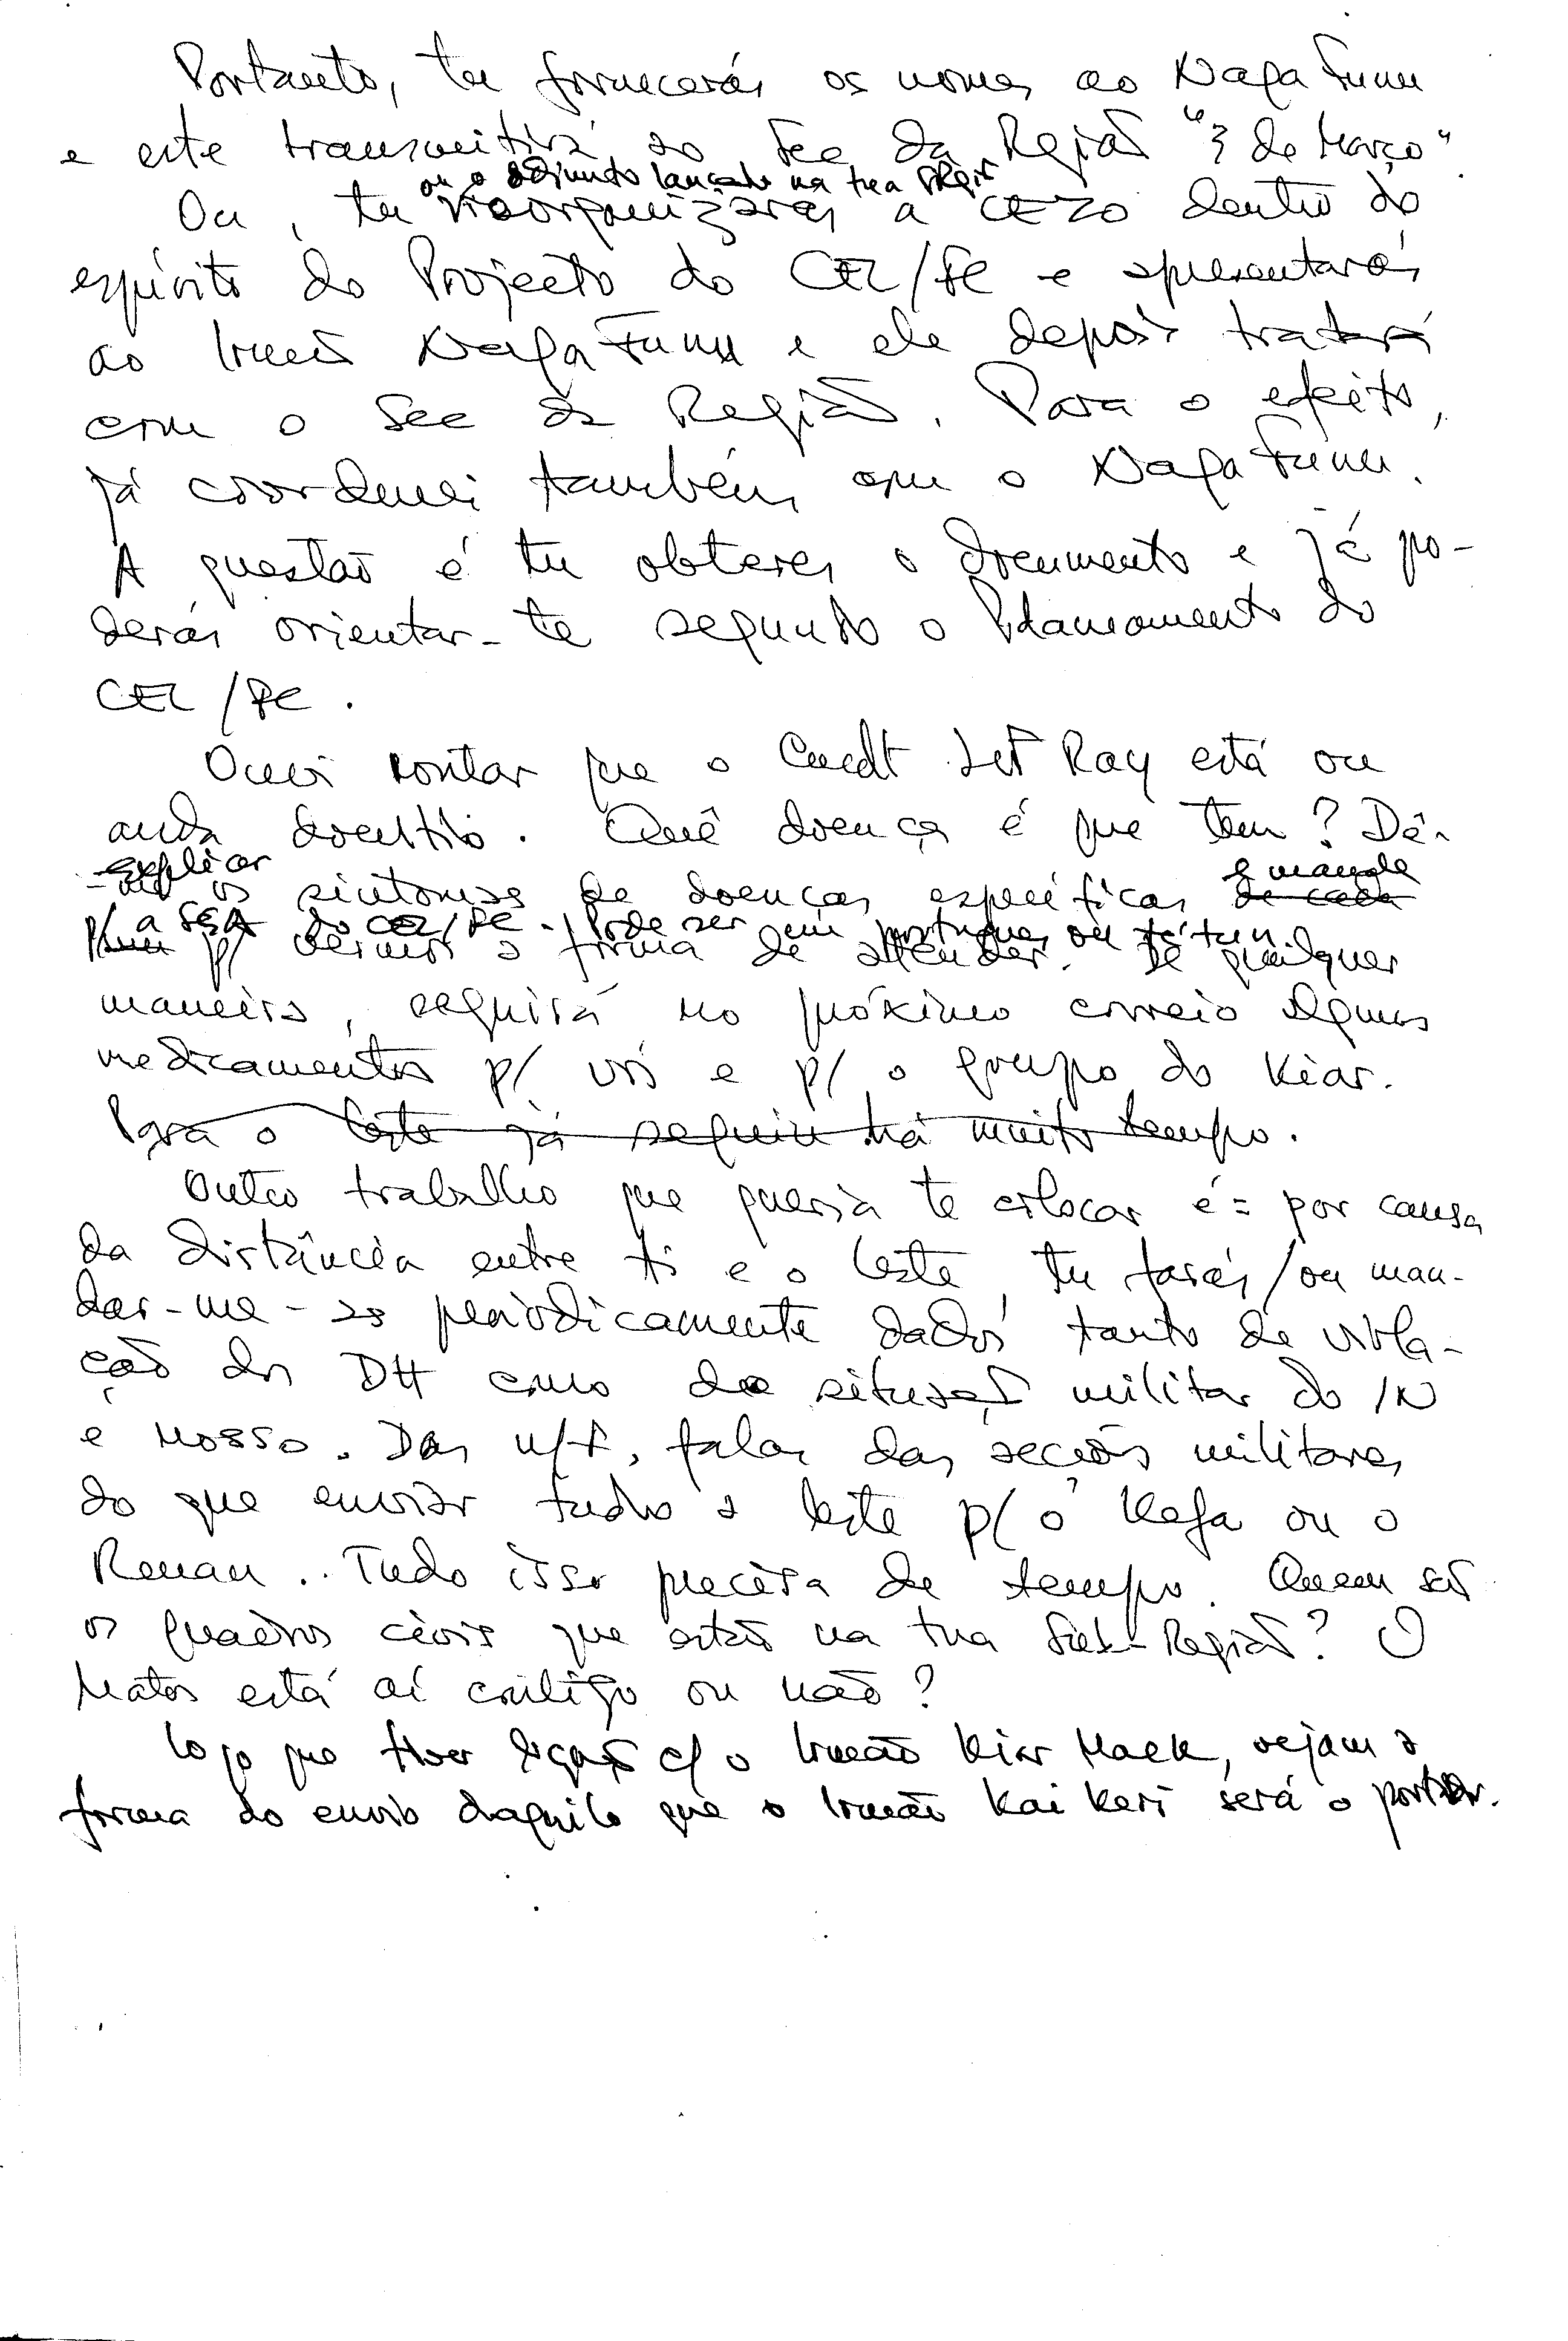 Portanto, tu fornecerás os nomes ao Naga Funu
e este transmitirá ao Sec da Região "3 de Março".
ou o adjunto lançado na tua SRegi
Ou, tu reorganizarás a CEZO dentro do
espírito do Projecto do CEL/FE e apresentarás
ao Irmão Naga Funu e ele depois tratará
com o Sec da Região. Para o efeito,
já coordenei também com o Naga Funu.
A questão é tu obteres o documento e já po-
derás orientar-te segundo o Planeamento do
CEL/FE.
Ouvi contar que o Cmdt Ray está ou
anda doentio. Quê doença é que tem? Dê-
explicar e manda
os sintomas de doenças específicas de cada
a do CEL/FE. Pode ser em português ou tétun
p/ vermos a forma de atender. De qualquer
maneira, seguirá no próximo correio alguns
medicamentos p/ vós e p/ o grupo do Kiar.
Para o leste já seguiu há muito tempo.
Outro trabalho que queria te colocar é = por causa
da distância entre ti e o leste, tu farás/ou man-
dar-me-ás periodicamente dados tanto de viola-
ção dos DH como da situação militar do IN
e nosso. Das n/F, falar das secções militares
do que enviar tudo a leste p/ o Kefa ou o
Renan.. Tudo isso precisa de tempo. Quem são
os quadros civis que estão na tua Sub-Região? O
Matos está aí contigo ou não?
Logo que tiver ligação c/ o Irmão Kiar Maek, vejam a
forma do envio daquilo que o Irmão Kai Keri será o portador.